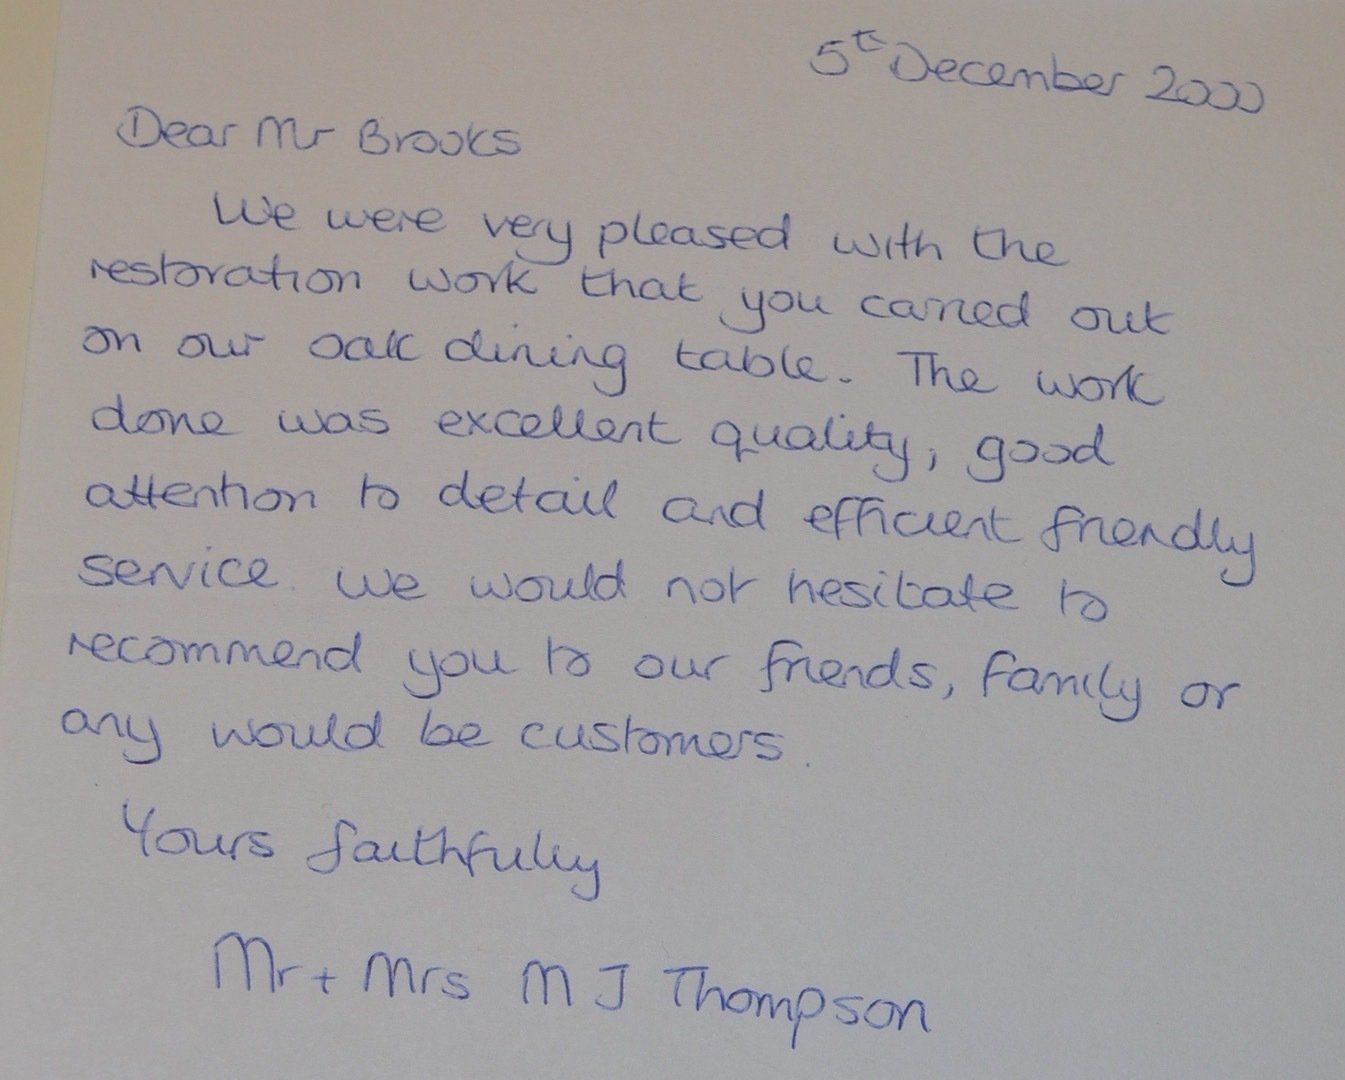 5th December 2000
Dear Mr Brooks
We were very pleased with the
restoration work that you carried out
on our oak dining table. The work
done was excellent quality, good
attention to detail and efficient friendly
service. We would not hesitate to
recommend you to our friends, family or
any would be customers.
Yours faithfully
Mr + Mrs M J Thompson